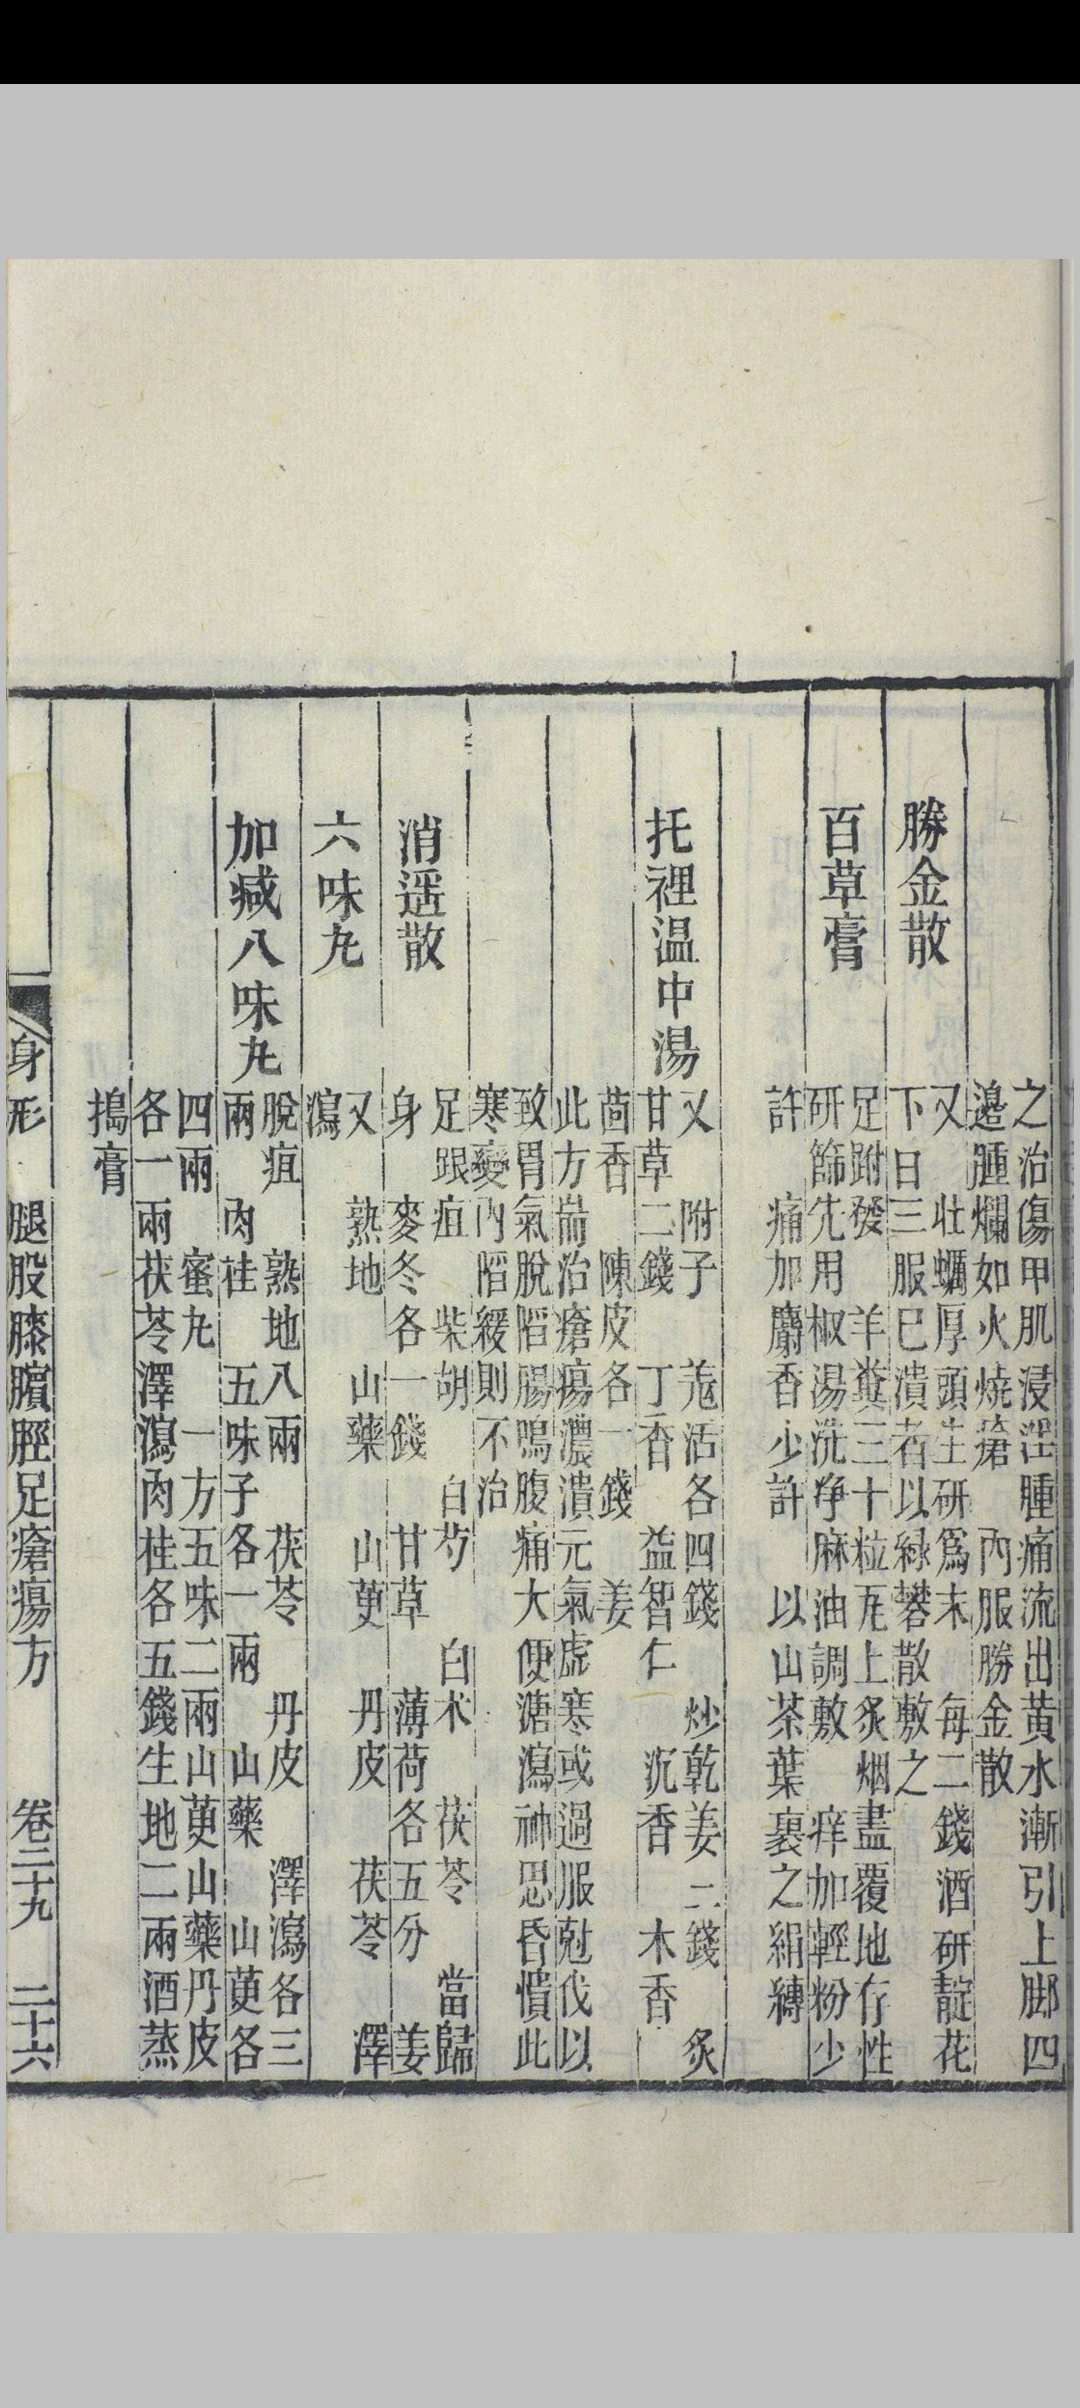 之治傷甲肌浸淫腫痛流出黃水漸引上脚四
邉腫爛如火燒瘡 內服勝金散
勝金散
又 壮蠣厚頭生研爲末 每二錢酒研靛花
下日三服已潰者以緑礬散敷之
百草膏
足跗發 羊糞三十粒尾上炙烟盡覆地存性
研篩先用椒湯洗净麻油調敷 痒加輕粉少
許 痛加麝香少許 以山茶葉裏之絹縳
托裡温中湯
又 附子 羗活各四錢 炒乾姜二錢 炙
甘草二錢 丁香 益智仁 沉香 木香
茴香 陳皮各一錢 姜
此方耑治瘡瘍濃潰元氣虛寒或過服尅伐以
致胃氣脫䧟腸鳴腹痛大便溏瀉神思昏憒此
寒變內䧟緩則不治
消遥散
足跟疽 柴胡 白芍 白术 茯苓 當歸
身 麥冬各一錢 甘草 薄荷各五分 姜
六味𠃵
又 熟地 山藥 山萸 丹皮 茯苓 澤
瀉
加减八味𠃵
脫疽 熟地八兩 茯苓 丹皮 澤瀉各三
兩 肉桂 五味子各一兩 山藥 山萸各
四兩 蜜𠃵 一方五味二兩山萸山藥丹皮
各一兩茯苓澤瀉肉桂各五錢生地二兩酒蒸
搗膏
身形 腿股膝臏脛足瘡瘍方 卷二十九 二十六